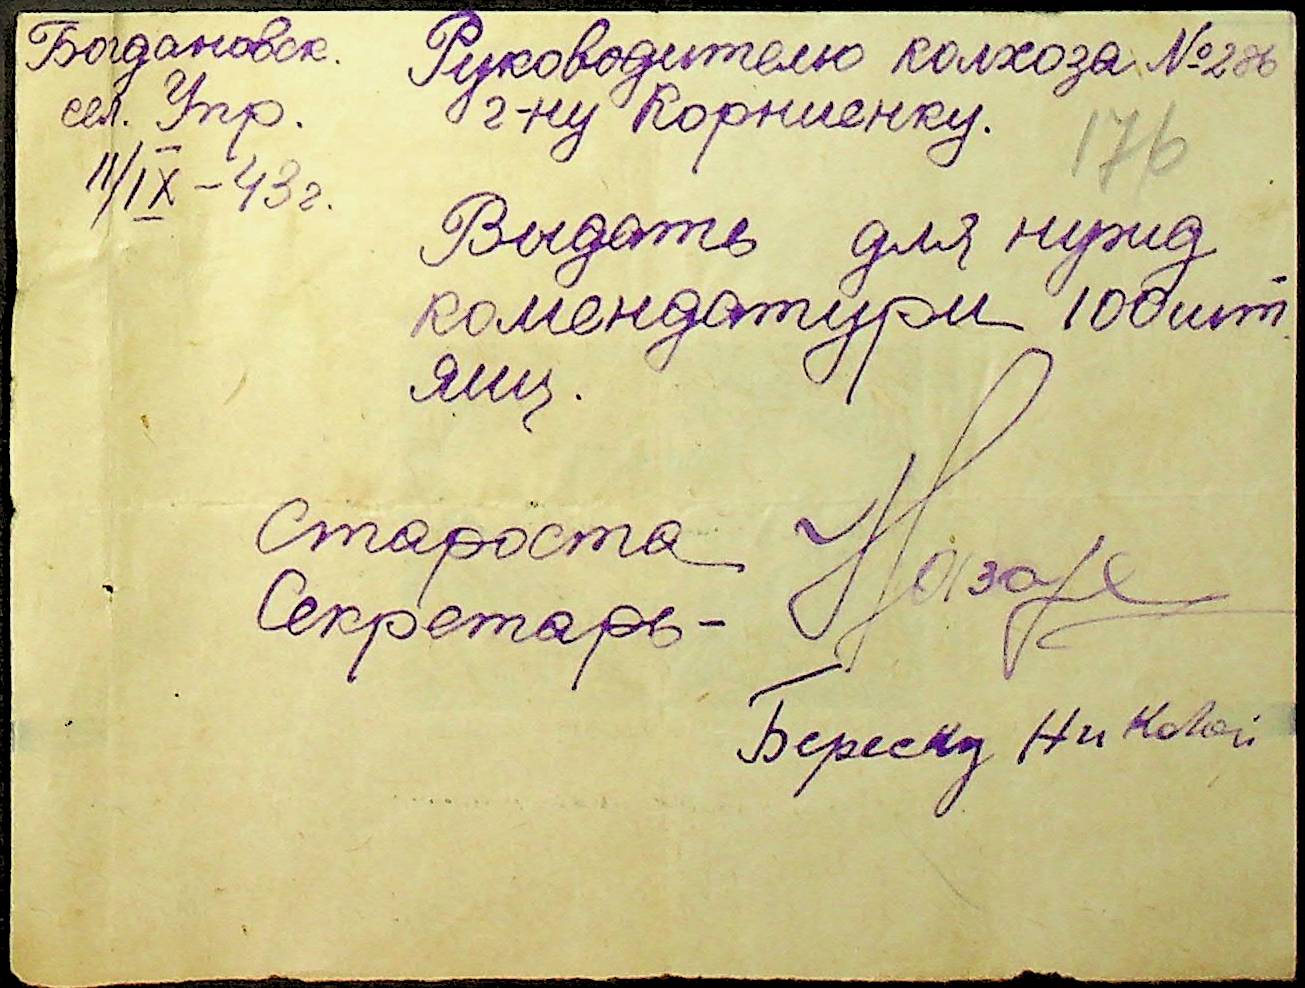 Богдановск.
сел. Упр.
11/IX-43г.
Руководителю колхоза №2
г-ну Корниенку.
176
Выдать для нужд
комендатури 100 шт.
яиц.
Староста
Секретарь-
Береску Николай